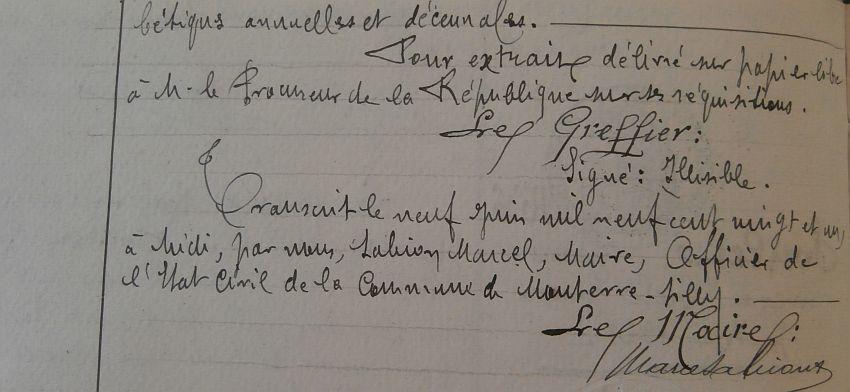 bétiques annuelles et décennales.
Pour extrait délivré sur papier libre
à M. le Procureur de la République sur ses réquisitions.
Le Greffier:
Signé: Illisible.
Transcrit le neuf Juin mil neuf cent vingt et un,
à Midi, par nous, Marcel, Maire, Officier de
l'Etat Civil de la Commune de Monterre-Silly.
Le Maire: